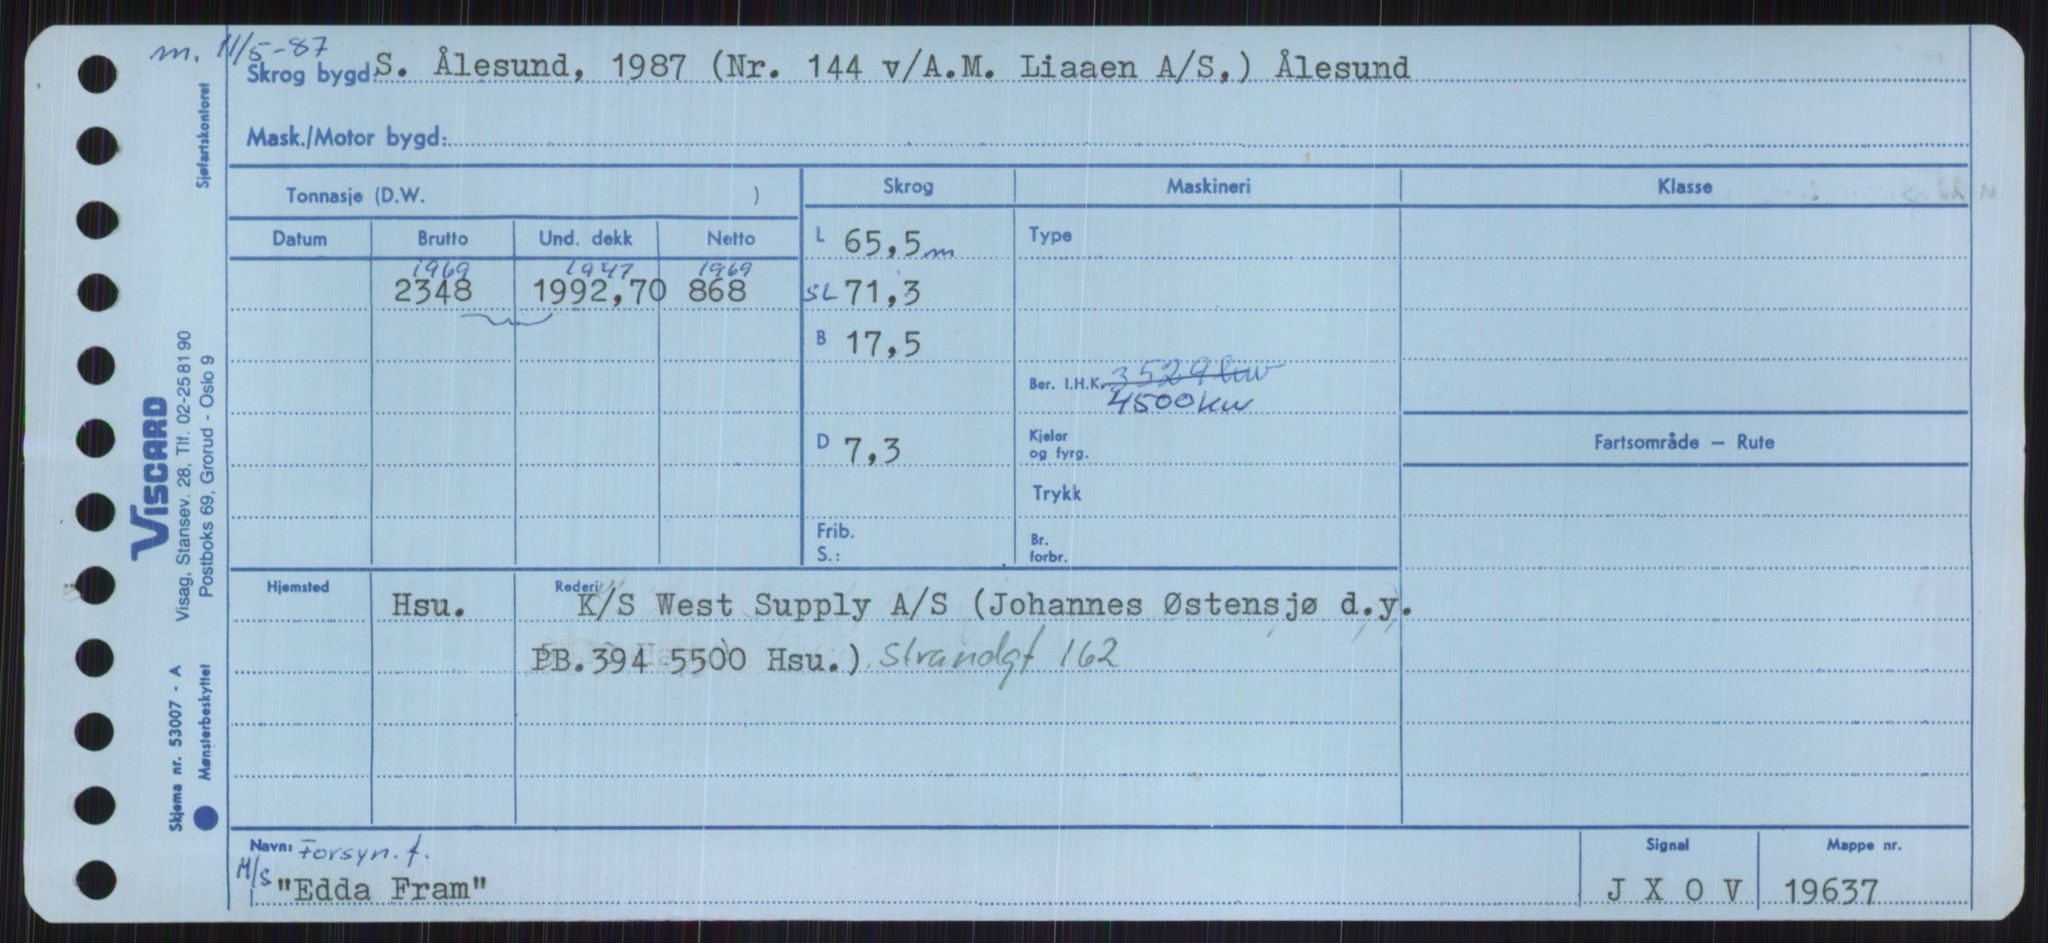 m. 11/5-87
Skrog bygd S. Ålesund, 1987 (Nr. 144 v/A.M. Liaaen A/S,) Ålesund
Mask./Motor bygd:
Tonnasje (D.W. )
Skrog Maskineri Klasse
Datum Brutto Und. dekk Netto
1969 1947 1969
2348 1992,70 868
L 65,5 m
SL 71,3
B 17,5
D 7,3
Frib.
S.:
Type
Ber. I.H.K. 3529 kw
4500 kw
Kjelor
og fyrg.
Trykk
Br.
forbr.
Fartsområde – Rute
Hjemsted Hsu.
Rederi K/S West Supply A/S (Johannes Østensjø d.y.
PB.394 5500 Hsu.) Strandgt 162
Navn: Forsyn.f.
M/S "Edda Fram"
Signal
J X O V
Mappe nr.
19637
Sjøfartskontoret
VISCARD
Visag, Stansev. 28, Tlf. 02-25 81 90
Postboks 69, Grorud - Oslo 9
Skjema nr. 53007 - A
Mønsterbeskyttet